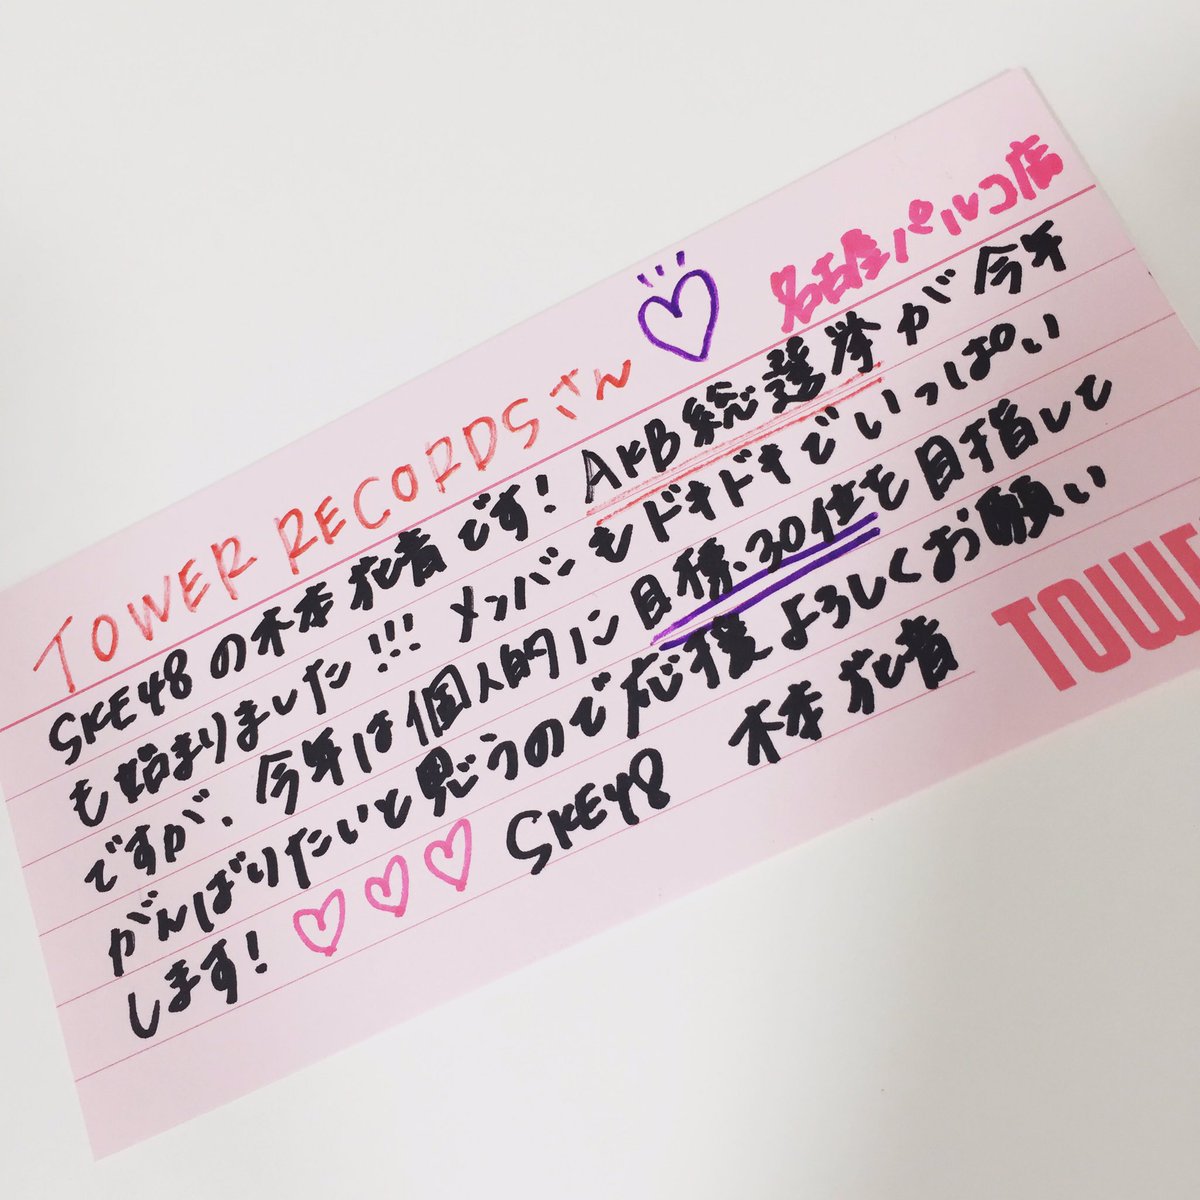 TOWER RECORDSさん
名古屋パルコ店
SKE48の木本花音です! AKB総選挙が今年
も始まりました!!! メンバーもドキドキでいっぱい
ですが、今年は個人的に目標、30位を目指して
がんばりたいと思うので応援よろしくお願い
します! ♡♡♡ SKE48 木本花音
TOWE